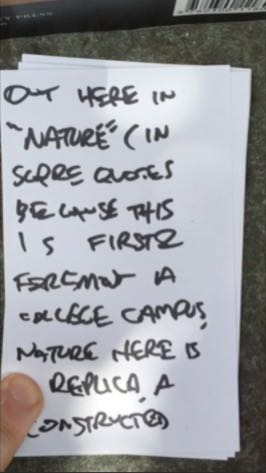 PRESS
OUT HERE IN
"NATURE" (IN
SCARE QUOTES
BECAUSE THIS
IS FIRST &
FOREMOST A
COLLEGE CAMPUS,
NATURE HERE IS
REPLICA, A
CONSTRUCTED